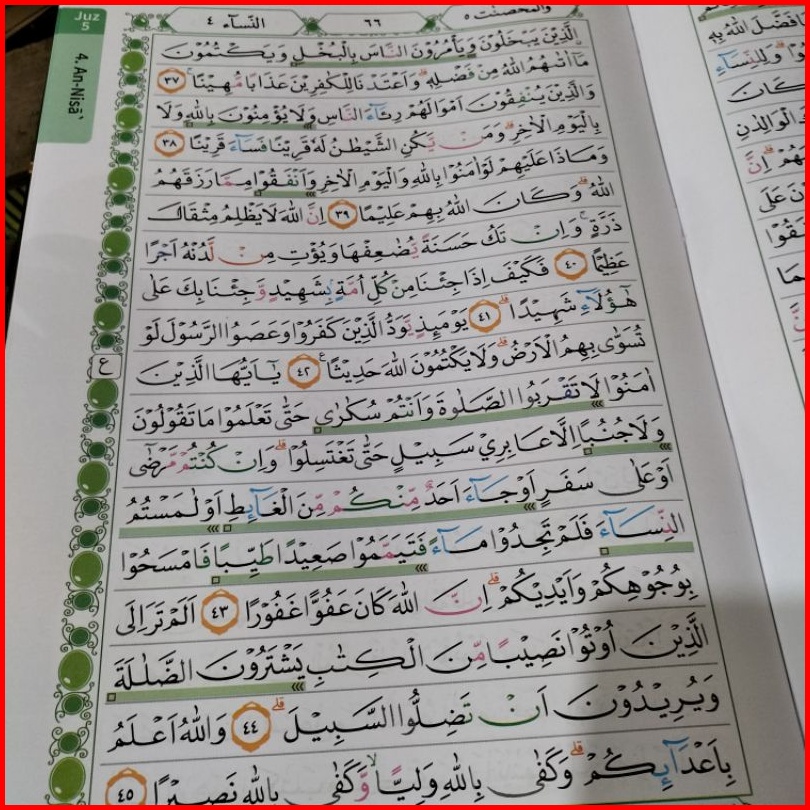 Juz
5
4. An-Nisā'
النّسآء ٤
٦٦
والمحصنت ٥
الَّذِيْنَ يَبْخَلُوْنَ وَيَأْمُرُوْنَ النَّاسَ بِالْبُخْلِ وَيَكْتُمُوْنَ
مَآ اٰتٰىهُمُ اللّٰهُ مِنْ فَضْلِهٖۗ وَاَعْتَدْنَا لِلْكٰفِرِيْنَ عَذَابًا مُّهِيْنًاۚ ٣٧
وَالَّذِيْنَ يُنْفِقُوْنَ اَمْوَالَهُمْ رِئَاۤءَ النَّاسِ وَلَا يُؤْمِنُوْنَ بِاللّٰهِ وَلَا
بِالْيَوْمِ الْاٰخِرِۗ وَمَنْ يَّكُنِ الشَّيْطٰنُ لَهٗ قَرِيْنًا فَسَاۤءَ قَرِيْنًا ٣٨
وَمَاذَا عَلَيْهِمْ لَوْ اٰمَنُوْا بِاللّٰهِ وَالْيَوْمِ الْاٰخِرِ وَاَنْفَقُوْا مِمَّا رَزَقَهُمُ
اللّٰهُۗ وَكَانَ اللّٰهُ بِهِمْ عَلِيْمًا ٣٩ اِنَّ اللّٰهَ لَا يَظْلِمُ مِثْقَالَ
ذَرَّةٍۚ وَاِنْ تَكُ حَسَنَةً يُّضٰعِفْهَا وَيُؤْتِ مِنْ لَّدُنْهُ اَجْرًا
عَظِيْمًا ٤٠ فَكَيْفَ اِذَا جِئْنَا مِنْ كُلِّ اُمَّةٍۢ بِشَهِيْدٍ وَّجِئْنَا بِكَ عَلٰى
هٰٓؤُلَاۤءِ شَهِيْدًاۗ ٤١ يَوْمَىِٕذٍ يَّوَدُّ الَّذِيْنَ كَفَرُوْا وَعَصَوُا الرَّسُوْلَ لَوْ
تُسَوّٰى بِهِمُ الْاَرْضُۗ وَلَا يَكْتُمُوْنَ اللّٰهَ حَدِيْثًا ࣖ ٤٢ يٰٓاَيُّهَا الَّذِيْنَ
ع
اٰمَنُوْا لَا تَقْرَبُوا الصَّلٰوةَ وَاَنْتُمْ سُكَارٰى حَتّٰى تَعْلَمُوْا مَا تَقُوْلُوْنَ
وَلَا جُنُبًا اِلَّا عَابِرِيْ سَبِيْلٍ حَتّٰى تَغْتَسِلُوْاۗ وَاِنْ كُنْتُمْ مَّرْضٰٓى
اَوْ عَلٰى سَفَرٍ اَوْ جَاۤءَ اَحَدٌ مِّنْكُمْ مِّنَ الْغَاۤىِٕطِ اَوْ لٰمَسْتُمُ
النِّسَاۤءَ فَلَمْ تَجِدُوْا مَاۤءً فَتَيَمَّمُوْا صَعِيْدًا طَيِّبًا فَامْسَحُوْا
بِوُجُوْهِكُمْ وَاَيْدِيْكُمْۗ اِنَّ اللّٰهَ كَانَ عَفُوًّا غَفُوْرًا ٤٣ اَلَمْ تَرَ اِلَى
الَّذِيْنَ اُوْتُوْا نَصِيْبًا مِّنَ الْكِتٰبِ يَشْتَرُوْنَ الضَّلٰلَةَ
وَيُرِيْدُوْنَ اَنْ تَضِلُّوا السَّبِيْلَۗ ٤٤ وَاللّٰهُ اَعْلَمُ
بِاَعْدَاۤىِٕكُمْۗ وَكَفٰى بِاللّٰهِ وَلِيًّا وَّكَفٰى بِاللّٰهِ نَصِيْرًا ٤٥